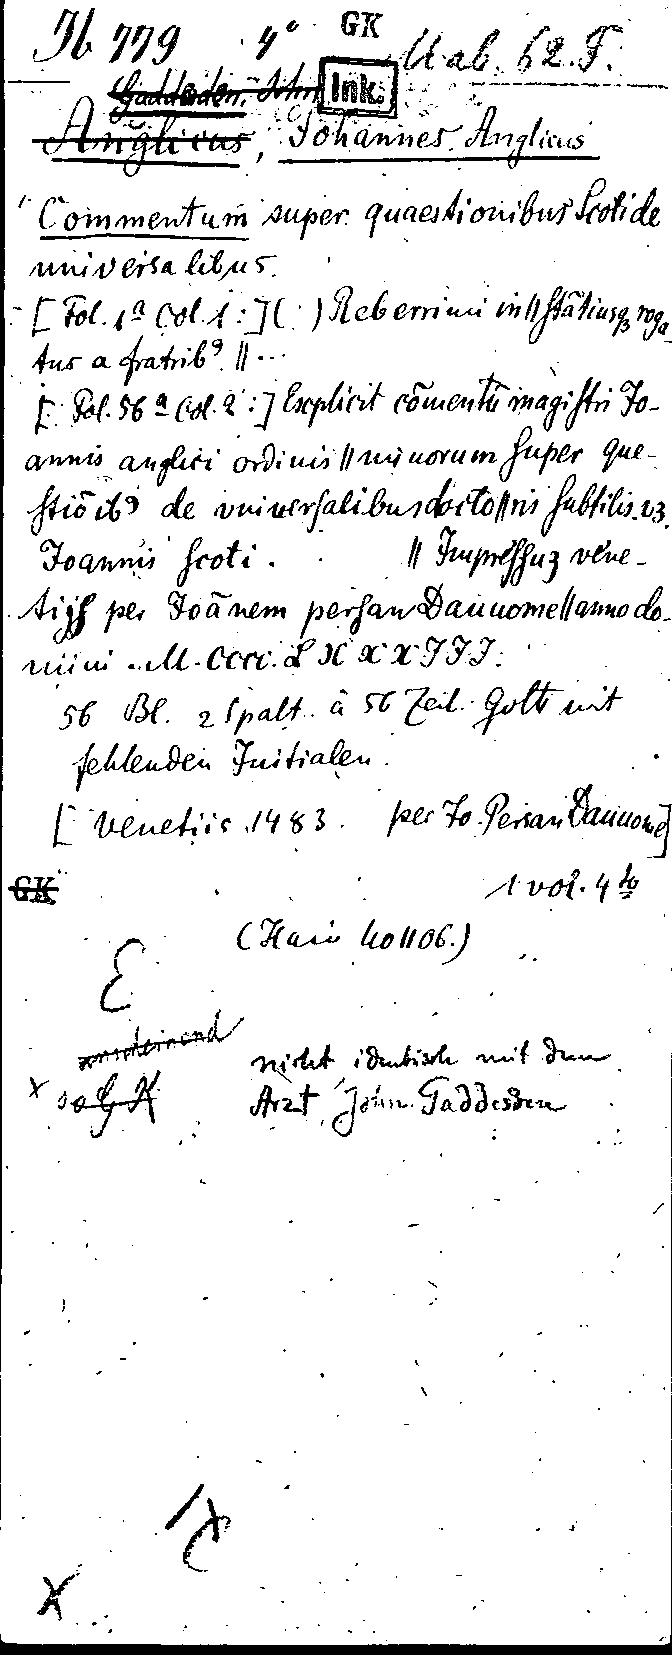 Ib 779 4° GK Mab. 62. F.
Gaddesden, John Ink.
Anglicus, Johannes Anglicus
Commentum super quaestionibus Scoti de
universalibus.
[Fol. 1a Col. 1:] ( ) Reberrimi in || stātiusqꝫ roga
tus a fratribꝰ || ...
[Fol. 56a Col. 2:] Explicit cōmentū magistri Jo-
annis anglici ordinis || minorum super que-
stiōibꝰ de vniuersalibus docto || ris subtilis. vꝫ.
Joannis scoti. || Impressuꝫ vene-
tijs per Joānem persan Dauuome || anno do-
mini . M. cccc. L X X X I I I.
56 Bl. 2 Spalt. à 56 Zeil. Goth mit
fehlenden Initialen.
[Venetiis 1483. per Jo. Persan Dauuome]
GK 1 vol. 4to
(Hain
E
anscheinend nicht identisch mit dem
x so GK Arzt John Gaddesden
X